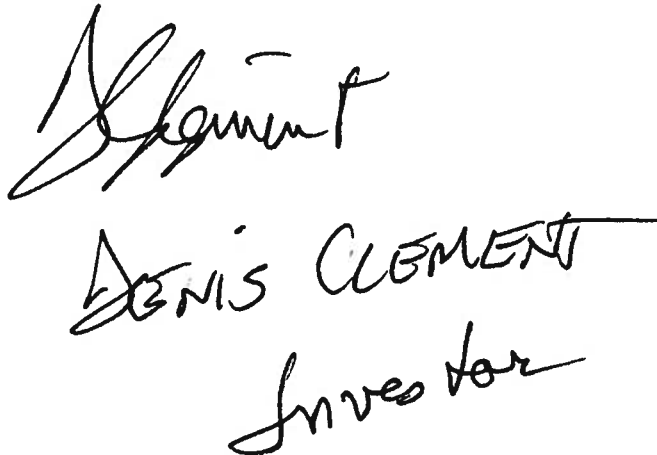 DClement
DENIS CLEMENT
Investor